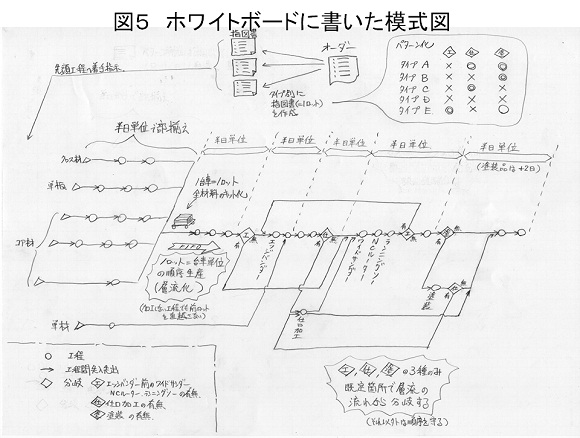 図5 ホワイトボードに書いた模式図
指図書
オーダー
先頭工程へ着手指示
タイプ別に
指図書(=1ロット)
を作成
パターン化
エ 仕 塗
タイプ A × ◎ ◎
タイプ B × × ◎
タイプ C × ◎ ×
タイプ D × × ×
タイプ E ◎ × ○
半日単位で部揃え
半日単位
半日単位
半日単位
半日単位
半日単位
(塗装品は+2日)
クロス材
単板
コア材
1台車=1ロット
全材料のキット化
FIFO
1ロット=台車単位
の順序生産
(層流化)
単材
エッジバンダー
ワイドサンダー
NCルーター
ランニングソー
有
無
仕口加工
塗装
○ 工程
→ 工程間受入払出
◇ 分岐
エ エッジバンダー前のワイドサンダー
NCルーター、ランニングソーの有無
仕 仕口加工の有無
塗 塗装の有無
エ, 仕, 塗 の3種のみ
既定箇所で層流の
流れから分岐する